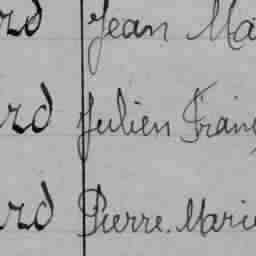 rd Jean Ma
rd Julien Franç
rd Pierre. Marie